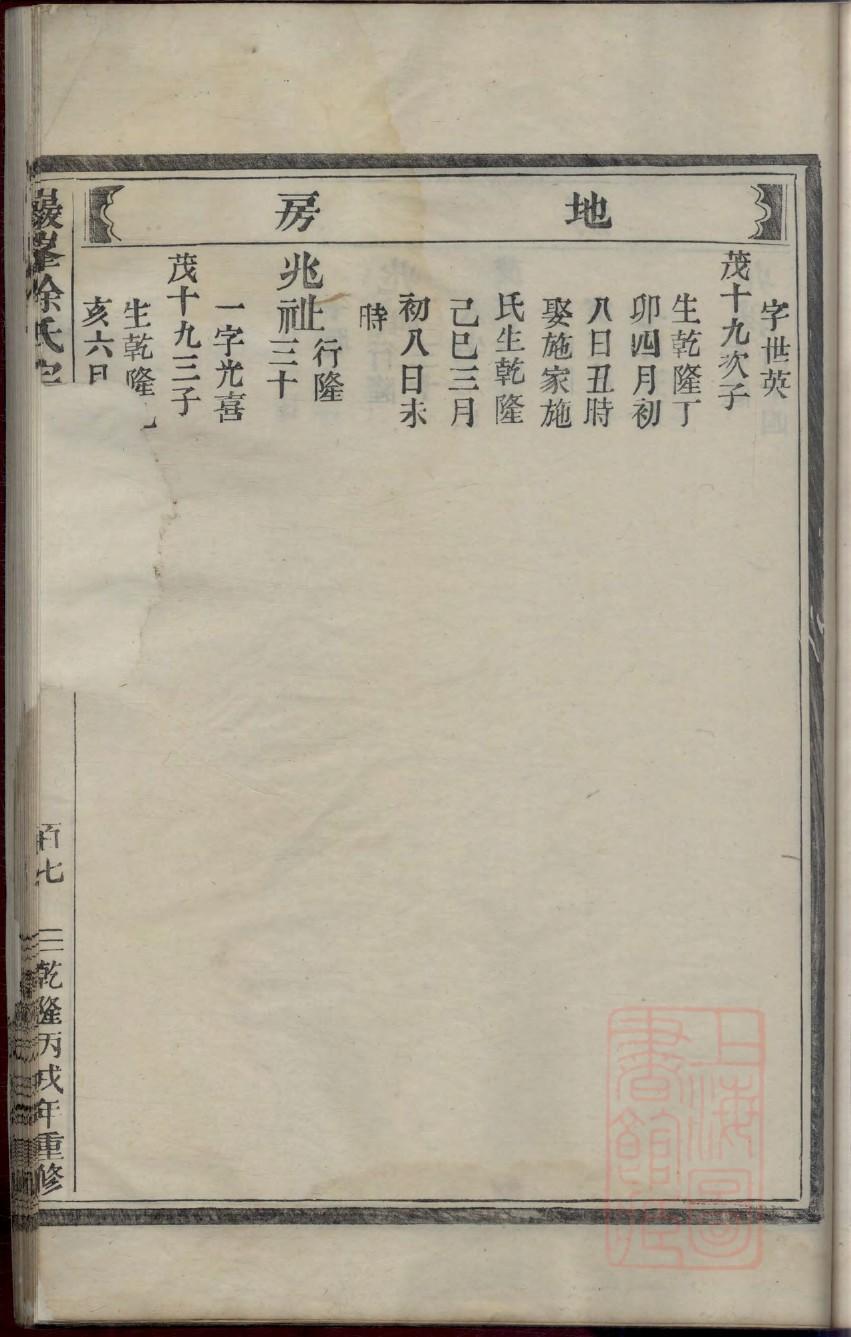 地房
字世英
茂十九次子
生乾隆丁
卯四月初
八日丑時
娶施家施
氏生乾隆
己巳三月
初八日未
時
兆祉行隆三十
一字光喜
茂十九三子
生乾隆
亥六月
巖峯徐氏宗
百七
乾隆丙戌年重修
上海圖書館藏